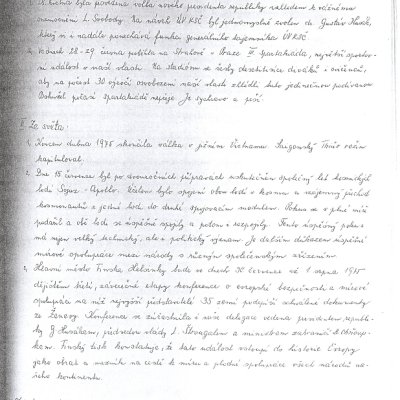 května byla provedena volba nového presidenta republiky vzhledem k vážnému
onemocnění L. Svobody. Na návrh ÚV KSČ byl jednomyslně zvolen dr. Gustáv Husák,
který si i nadále ponechává funkci generálního tajemníka ÚV KSČ
Ve dnech 28-29 června proběhla na Strahově v Praze spartakiáda, největší sportov-
ní událost v naší vlasti. Na stadionu se desetitisíce diváků i cvičenců,
aby na počest 30. výročí osvobození naší vlasti zhlédli tuto jedinečnou podívanou
Bohužel počasí spartakiádě nepřeje. Je sychravo a prší
II. Ze světa:
1, Koncem dubna 1975 skončila válka v jižním Vietnamu Saigonský režim
kapituloval.
2, Dne 15 července byl po dvouročních přípravách uskutečněn společný let kosmických
lodí Sojuz - Apollo. Účelem bylo spojení obou lodí v kosmu a vzájemný přechod
kosmonautů z jedné lodi do druhé spojovacím modulem. Pokus se v plné míře
podařil a obě lodi se úspěšně spojily a potom i rozpojily. Tento úspěšný pokus
má nejen velký technický, ale i politický význam. Je dalším důkazem úspěšné
mírové spolupráce mezi národy s různým společenským zřízením.
3, Hlavní město Finska Helsinky bude ve dnech 30 července až 1 srpna 1975
dějištěm třetí, závěrečné etapy konference o evropské bezpečnosti a mírové
spolupráci na níž nejvyšší představitelé 35 zemí podepíší schválené dokumenty
ze Ženevy. Konference se zúčastnila i naše delegace vedena presidentem republi-
ky G Husákem, předsedou vlády L. Štrougalem a ministrem zahraničí B. Chňoup-
kem. Finský tisk konstatuje, že tato událost vstoupí do historie Evropy
jako obrat a mezník na cestě k míru a plodné spolupráce všech národů na-
šeho kontinentu.